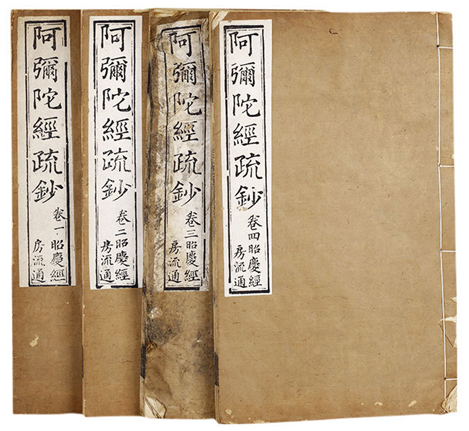 阿彌陀經疏鈔
卷一
昭慶經
房流通
阿彌陀經疏鈔
卷二
昭慶經
房流通
阿彌陀經疏鈔
卷三
昭慶經
房流通
阿彌陀經疏鈔
卷四
昭慶經
房流通